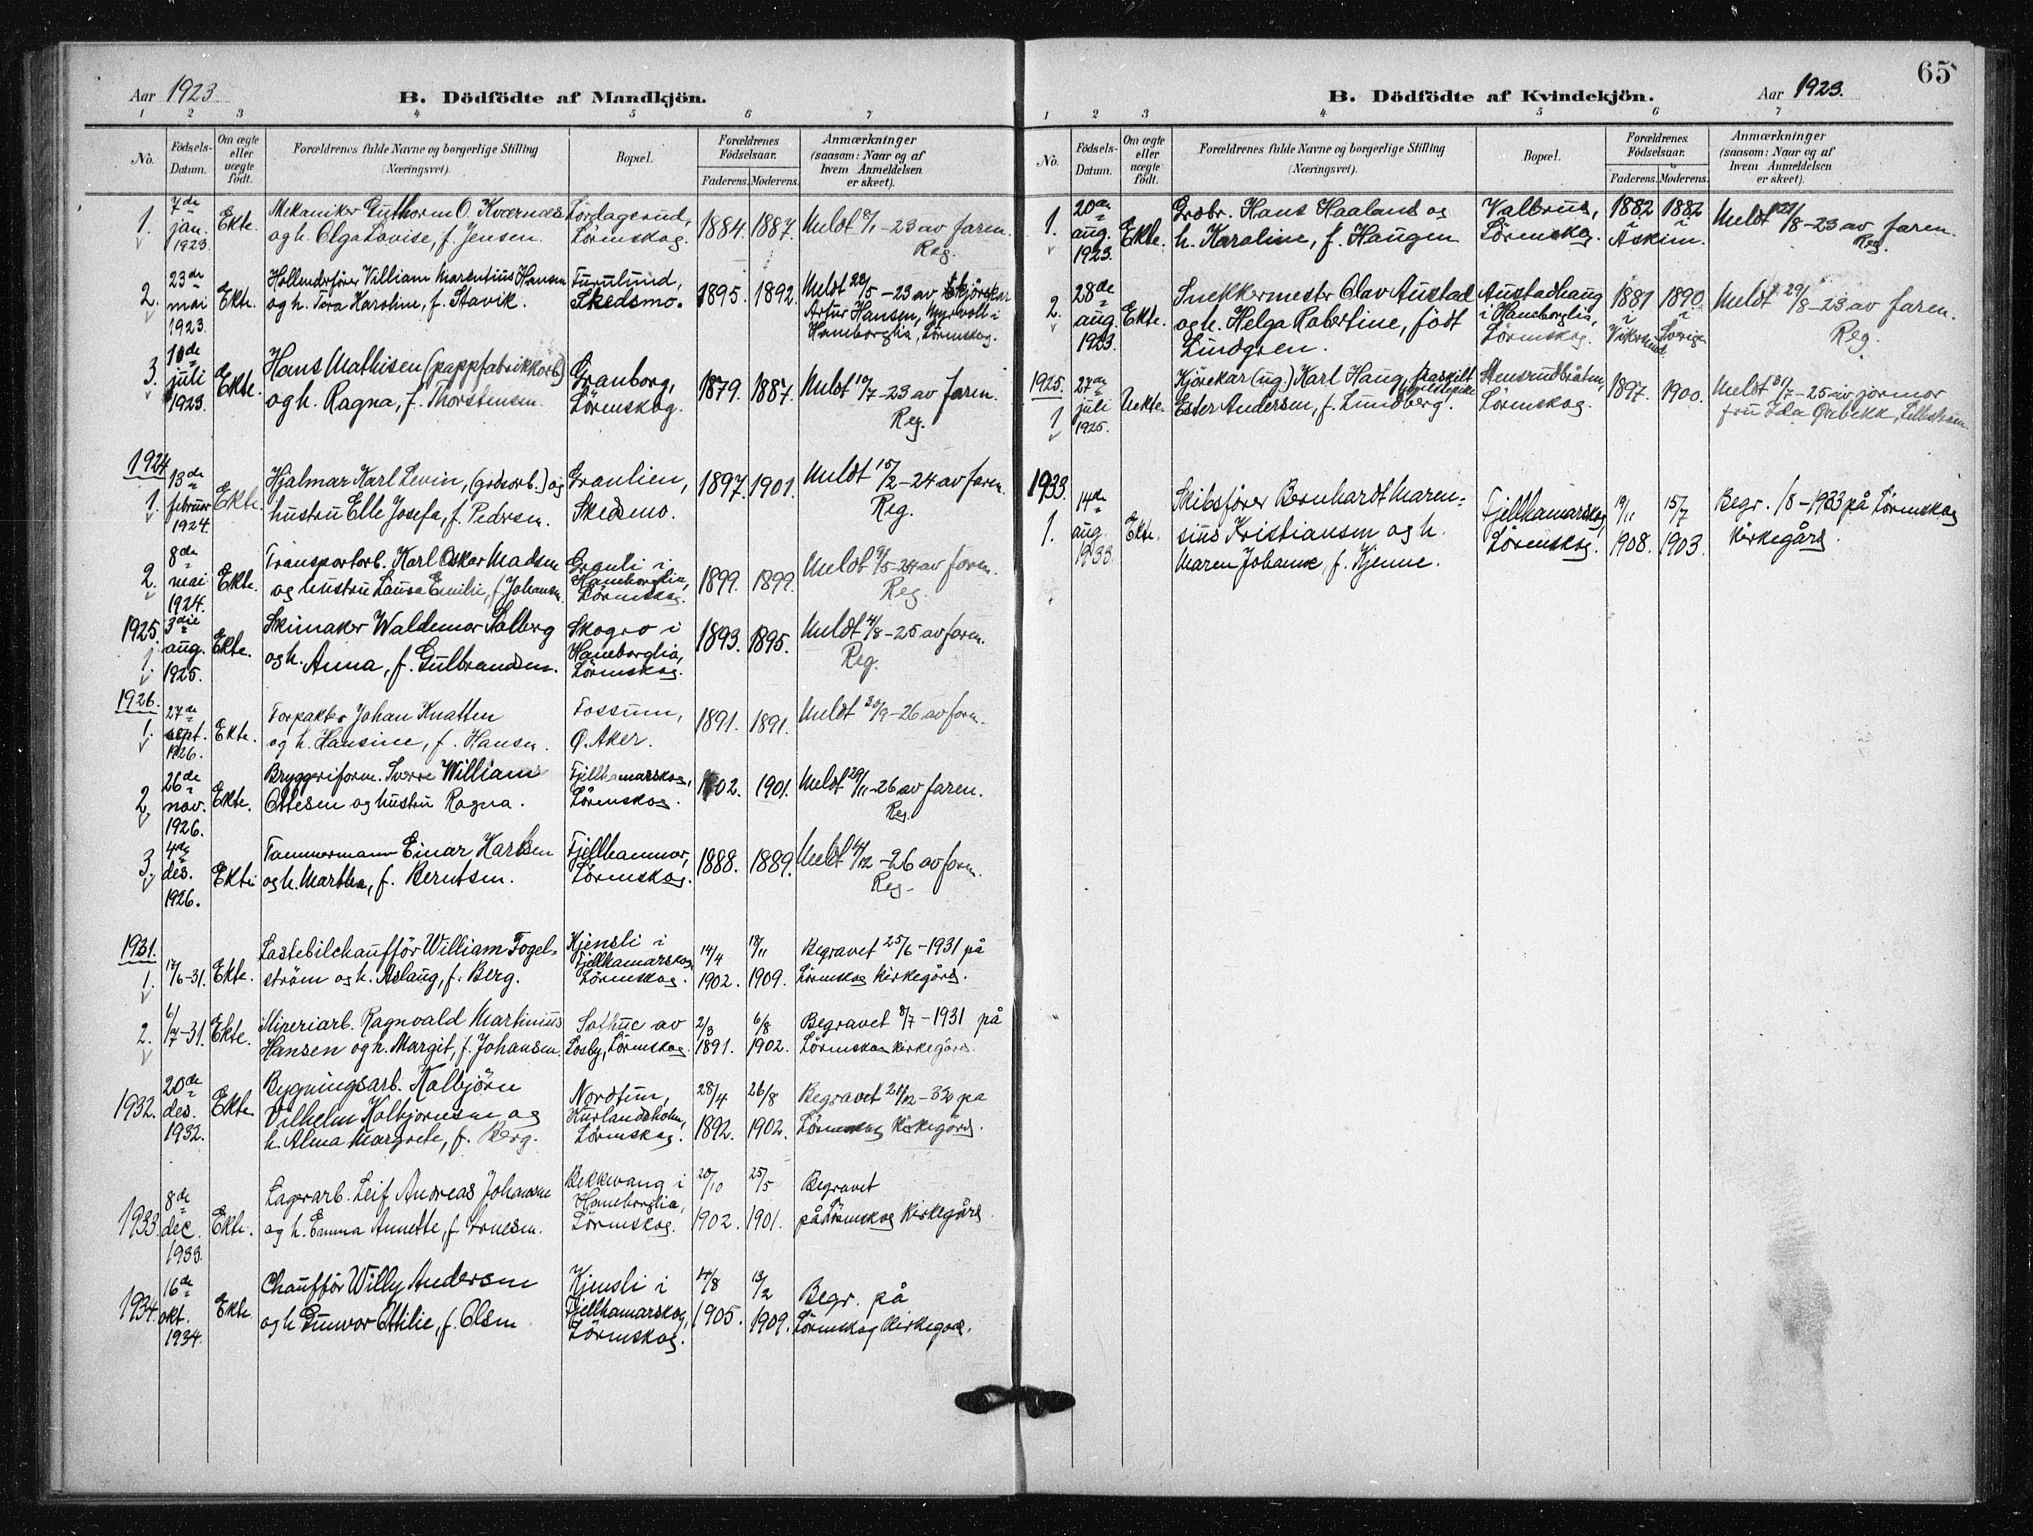 Aar 1923
B. Dödfödte af Mandkjön.
1 2 3 4 5 6 7
No.
Födsels-Datum.
Om ægte eller uægte födt.
Forældrenes fulde Navne og borgerlige Stilling (Næringsvei).
Bopæl.
Forældrenes Födselsaar.
Faderens. Moderens.
Anmærkninger (saasom: Naar og af hvem Anmeldelsen er skeet).
1. 7de jan. 1923. Ekte. Mekaniker Guthorm O. Kværnes Lørdagsrud, 1884. 1887. Meldt 8/1 - 23 av faren.
og h. Olga Lovise, f. Jensen. Lörenskog. Reg.
2. 23de mai 1923. Ekte. Hollenderfører William Marentius Hansen Furulund, 1895. 1892. Meldt 28/5 - 23 av Skjørskar
og h. Tora Karoline, f. Stavik. Skedsmo. Artur Hansen, Myrvoll i
Haneborglia, Lörenskog.
3. 10de juli 1923. Ekte. Hans Mathisen (pappfabrikkarb.) Granborg, 1879. 1887. Meldt 10/7 - 23 av faren.
og h. Ragna, f. Thorstensen. Lörenskog. Reg.
1924
1. 13de februar 1924. Ekte. Hjalmar Karl Levin, (godsarb.) og Granlien, 1897. 1901. Meldt 15/2 - 24 av faren.
hustru Elle Josefa, f. Pedersen. Skedsmo. Reg.
2. 8de mai 1924. Ekte. Transportarb. Karl Oskar Madsen Granli i 1899. 1899. Meldt 9/5 - 24 av faren.
og hustru Laura Emilie, f. Johansen. Haneborglia, Lörenskog. Reg.
1925.
1. 3die aug. 1925. Ekte. Skimaker Waldemar Solberg Skogro i 1893. 1895. Meldt 4/8 - 25 av faren.
og h. Anna, f. Gulbrandsen. Haneborglia, Lörenskog. Reg.
1926.
1. 27de sept. 1926. Ekte. Forpakter Johan Knatten Fossum, 1891. 1891. Meldt 30/9 - 26 av faren.
og h. Hansine, f. Hansen. Ø. Aker.
2. 26de nov. 1926. Ekte. Bryggeriform. Sverre William Fjellhamarskog, 1902. 1901. Meldt 29/11 - 26 av faren.
Ottesen og hustru Ragna. Lörenskog. Reg.
3. 4de des. 1926. Ekte. Tømmermann Einar Karlsen Fjellhammar, 1888. 1889. Meldt 4/12 - 26 av faren.
og h. Martha, f. Berntsen. Lörenskog. Reg.
1931.
1. 17/6-31. Ekte. Lastebilchaufför William Fogel- Kjensli i 14/4 18/11 Begravet 25/6 - 1931 på
ström og h. Aslaug, f. Berg. Fjellhamarskog, Lörenskog. 1902. 1909. Lörenskog kirkegård.
2. 6/7-31. Ekte. Miperiarb. Ragnvald Martinius Sathuc av 2/3 6/8 Begravet 8/7 - 1931 på
Hansen og h. Margit, f. Johansen. Losby, Lörenskog. 1891. 1902. Lörenskog kirkegård.
1932. 20de des. 1932. Ekte. Bygningsarb. Kolbjörn Nordtun, 28/4 26/8 Begravet 28/12 - 32 på
Vilhelm Kolbjørnsen og Kurlandsholm, 1892. 1902. Lörenskog kirkegård.
h. Alma Margrete, f. Berg. Lörenskog.
1933. 8de dec. 1933. Ekte. Lagerarb. Leif Andreas Johansen Bekkevang i 20/10 25/5 Begravet
og h. Emma Annette, f. Arnesen. Haneborglia, Lörenskog. 1902. 1901. på Lörenskog kirkegård
1934. 16de okt. 1934. Ekte Chaufför Willy Andersen Kjensli i 4/8 13/2 Begr. på
og h. Gunvor Ottilie, f. Olsen Fjellhamarskog, Lörenskog. 1905. 1909. Lörenskog kirkegård.
65
B. Dödfödte af Kvindekjön.
Aar 1923.
1 2 3 4 5 6 7
No.
Födsels-Datum.
Om ægte eller uægte födt.
Forældrenes fulde Navne og borgerlige Stilling (Næringsvei).
Bopæl.
Forældrenes Födselsaar.
Faderens. Moderens.
Anmærkninger (saasom: Naar og af hvem Anmeldelsen er skeet).
1. 20de aug. 1923. Ekte. Grobr. Hans Haaland og Valbrud, 1882 1882 Meldt 22/8 - 23 av faren.
h. Karoline, f. Haugen Lörenskog. i Askim. Reg.
2. 28de aug. 1923. Ekte. Snekkermester Olav Austad Austadhaug 1881 1890 Meldt 29/8 - 23 av faren.
og h. Helga Robertine, født i Haneborglia, i Vikersund i Sverige Reg.
Lindgren. Lörenskog.
1925.
1 27de juli 1925. Uekte. Kjørekar (ug.) Karl Haug, fraskilt Stensrudbråten, 1897. 1900. Meldt 31/7 - 25 av jormor
Ester Andersen, f. Lundberg. Lörenskog. fru Ida Ørbekk, Lillestrøm.
1933.
1. 14de aug. 1933. Ekte. Skibsfører Bernhardt Maren- Fjellhamarskog, 19/11 15/7 Begr. /8 - 1933 på Lörenskog
sius Kristiansen og h. Lörenskog. 1908. 1903. kirkegård.
Maren Johanne, f. Kjenne.